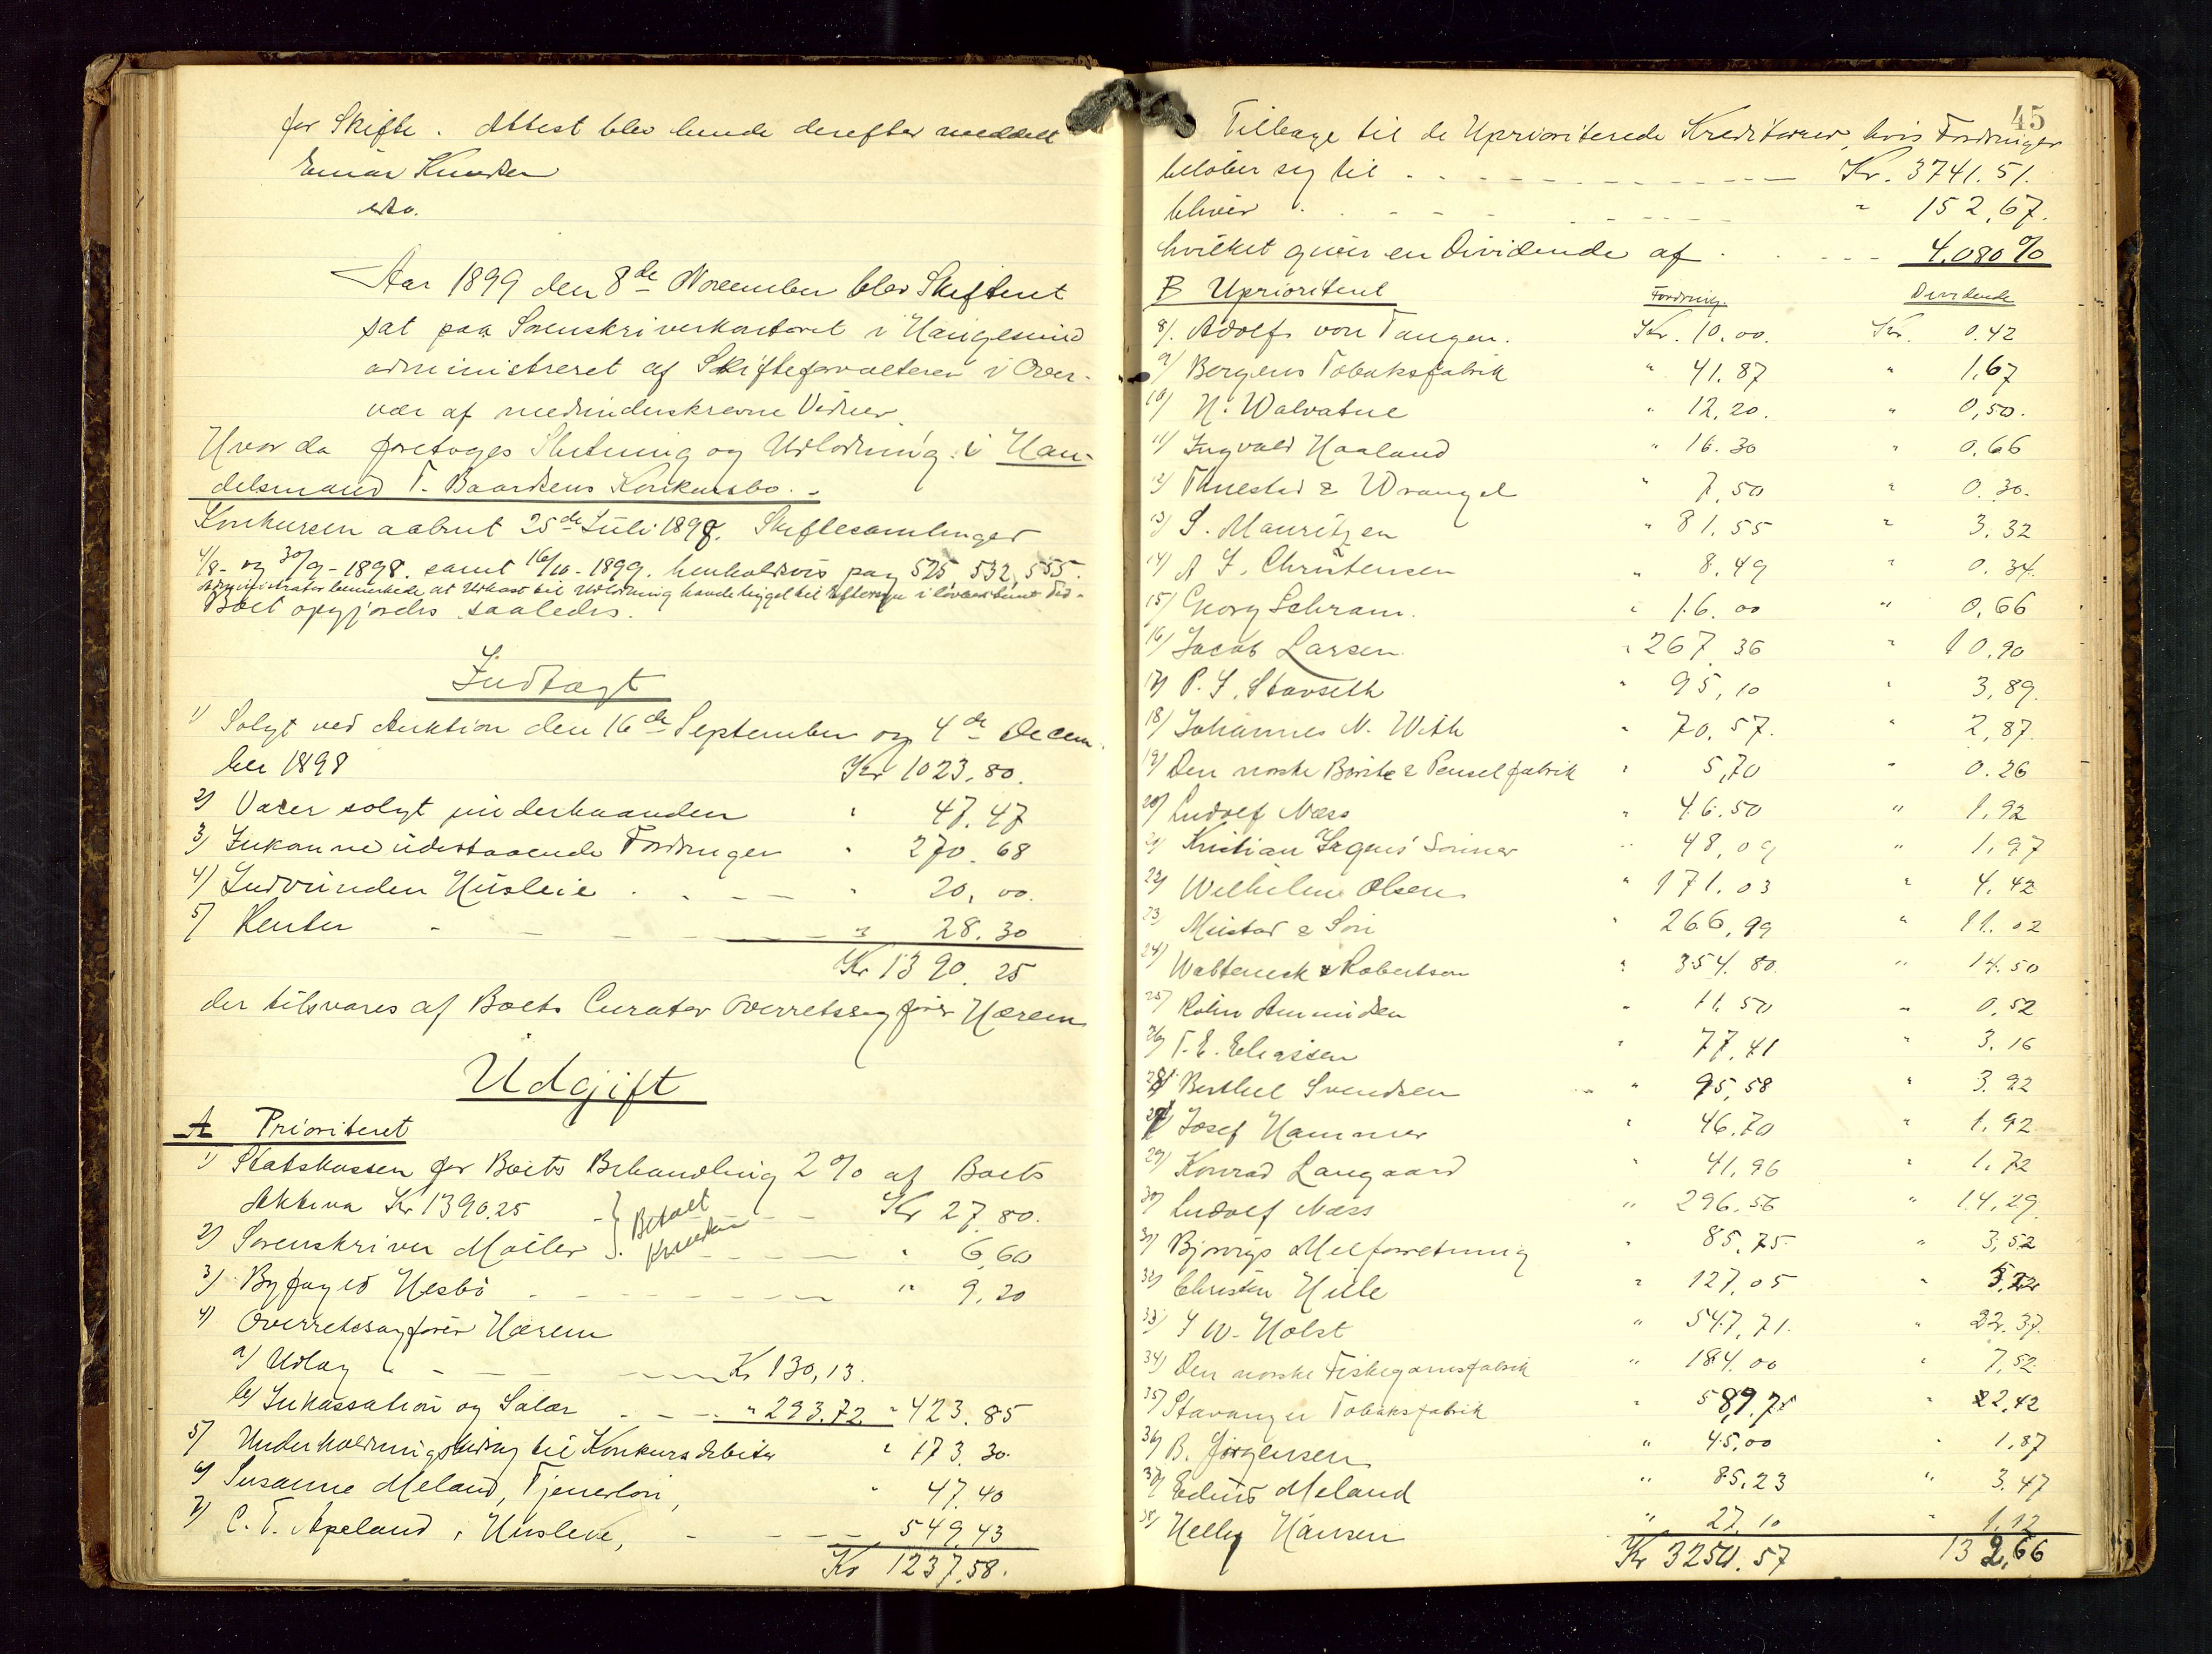 for Skifte. Attest blev hende derefter meddelt
Einar Knudsen
cto.
Aar 1899 den 8de November blev Skifteret
sat paa Sorenskriverkontoret i Haugesund
administreret af Skifteforvalteren i Over-
vær af medunderskrevne Vidner.
Hvor da foretoges Slutning og Udlodning i Han-
delsmand T. Baardsens Konkursbo. -
Konkursen aabnet 25de Juli 1898. Skiftesamlinger
4/8- og 30/9-1898. samt 16/10-1899. henholdsvis pag 525, 532, 555.
Administrator bemerkede at Udkast til Udlodning havde ligget til Eftersyn i lovbestemt Tid.-
Boet opgjordes saaledes.
Indtægt
1) Solgt ved Auktion den 16de September og 4de Decem-
ber 1898 Kr 1023.80.
2) Varer solgt underhaanden " 47.47
3) Inkomne udestaaende Fordringer " 270.68
4) Indvunden Husleie . - - - " 20,00.
5) Renter - - - - " 28.30
Kr 1390.25
der tilsvares af Boets Curator Overretssagfører Hærem
Udgift
A Prioriteret
1) Statskassen for Boets Behandling 2% af Boets
Aktiva Kr 1390.25 - } Betalt Knudsen - - Kr 27,80.
2) Sorenskriver Møller - - - " 6,60
3) Byfoged Hesbö - - - - " 9.20
4) Overretssagfører Hærem
a) Udlæg - - - Kr 130,13.
b) Inkassation og Salær - - - " 293.72 " 423.85
5) Underholdningsbidrag til Konkursdebitor " 173.30.
6) Susanne Meland, Tjenerløn, " 47.40
7) C. T. Apeland, Husleie, - - - - 549.43
Kr 1237,58.
45
Tilbage til de Uprioriterede Kreditorer, hvis Fordringer
beløber sig til . . - - - - Kr. 3741.51.
bliver . . - - - - " 152,67.
hvilket giver en Dividende af . . . - - - 4.080%
B Uprioriteret Fordring. Dividende
8). Adolf von Tangen. Kr. 10.00. Kr. 0.42
9) Bergens Tobaksfabrik " 41.87 " 1,67
10) N. Walvatne " 12,20. " 0,50.
11) Ingvald Haaland " 16.30 " 0,66
12) Tanestad & Wrangel " 7,50 " 0.30.
13) S. Mauritzen " 81.55 " 3.32
14) A J. Christensen " 8,49 " 0.34
15) Georg Schram. " 16.00 " 0,66
16) Jacob Larsen " 267 36 " 10.90
17) P. J. Stavseth " 95,10 " 3,89.
18) Johannes N. With " 70,57. " 2,87.
19) Den norske Börste & Penselfabrik " 5,70 " 0.26
20) Ludolf Næss " 46.50 " 1,92
21) Kristian Irgens' Sönner " 48,09 " 1,97
22) Wilhelm Olsen " 171.03 " 4.42
23) Mustad & Sön " 266,99 " 11.02
24) & Robertson " 354.80. " 14.50
25) Kolin Amundsen " 11.50 " 0,52
26) T. E. Eliassen " 77,41 " 3.16
27) Berthel Svendsen - " 95,58 " 3.92
28) Josef Hammer " 46.70 " 1.92
29) Konrad Langaard " 41,96 " 1.72
30) Ludolf Næss " 296.56 " 14,29.
31) Bjørvigs Melforretning " 85.75 " 3,52
32) Christen Hille " 127,05 " 5,22
33) J W. Holst " 547,71. " 22.37.
34) Den norske Fiskegarnsfabrik " 184.00 " 7.52.
35) Stavanger Tobaksfabrik " 589.75 " 22,42
36) B. Jörgensen " 45,00 " 1,87
37) Edvid Meland " 85,23 " 3.47
38) Helly Hansen " 27.10 " 1.12
Kr 3250.57 132,66